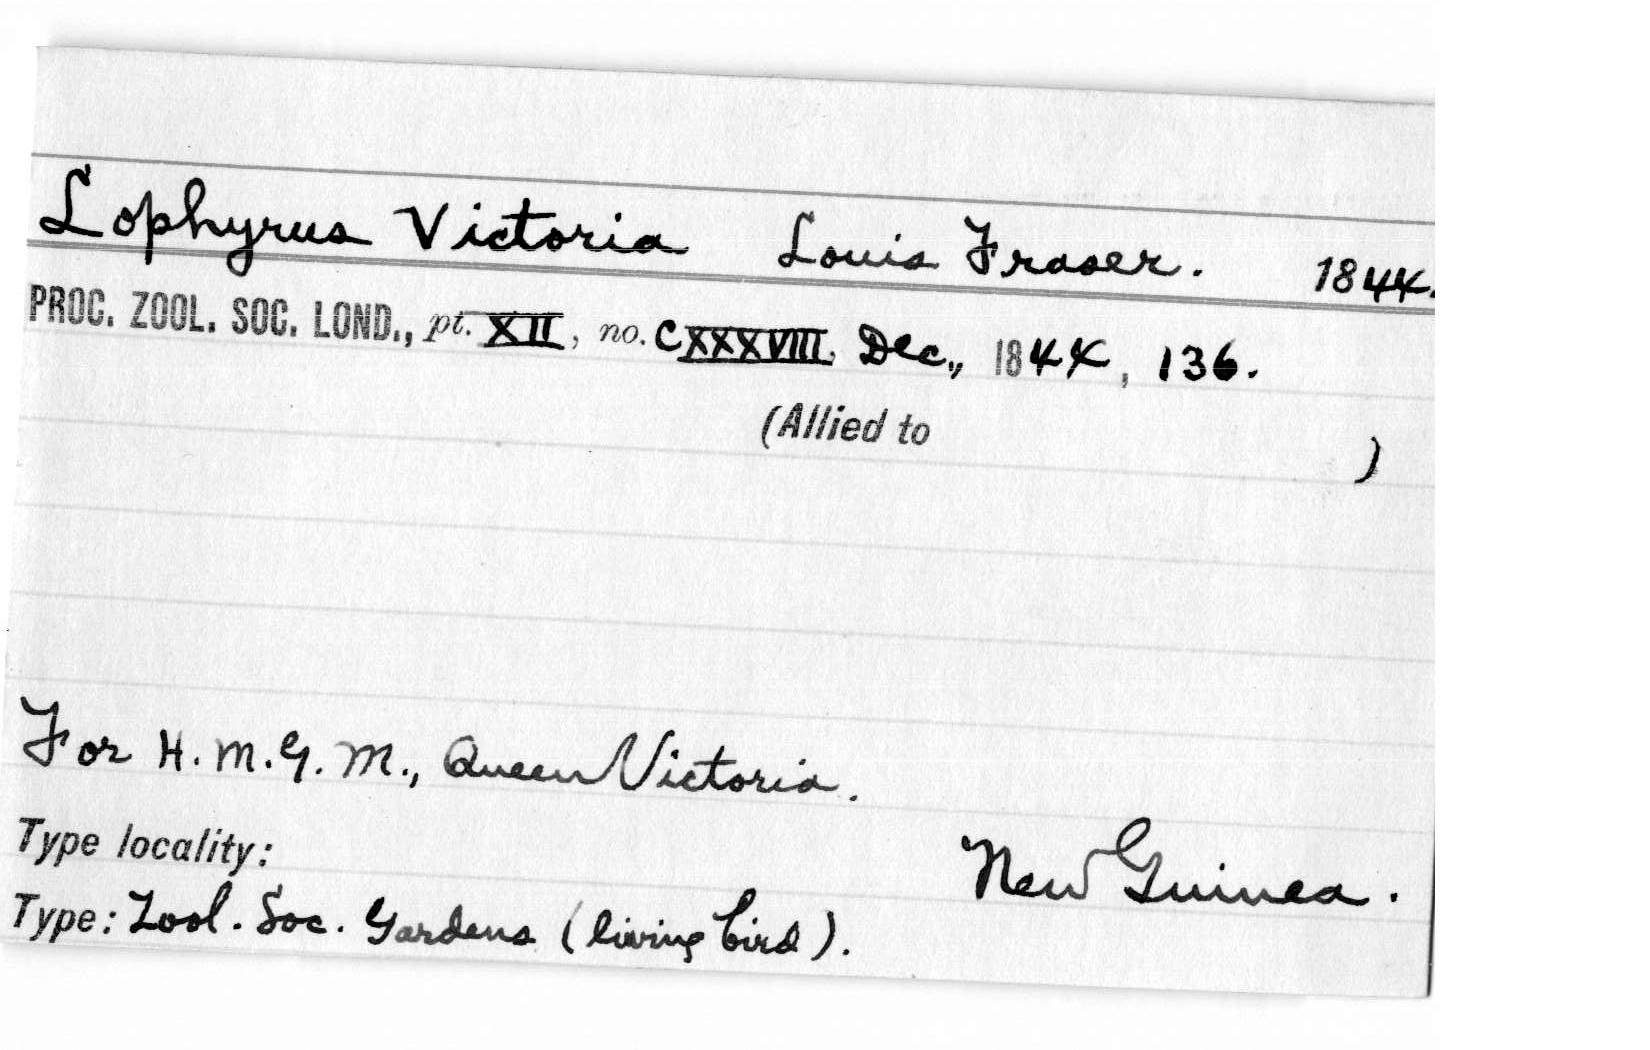 Lophyrus Victoria Louis Fraser. 1844.
PROC. ZOOL. SOC. LOND., pt. XII, no. CXXXVIII, Dec., 1844, 136.
(Allied to )
For H.M.G.M., Queen Victoria.
Type locality: New Guinea.
Type: Zool. Soc. Gardens (living bird).